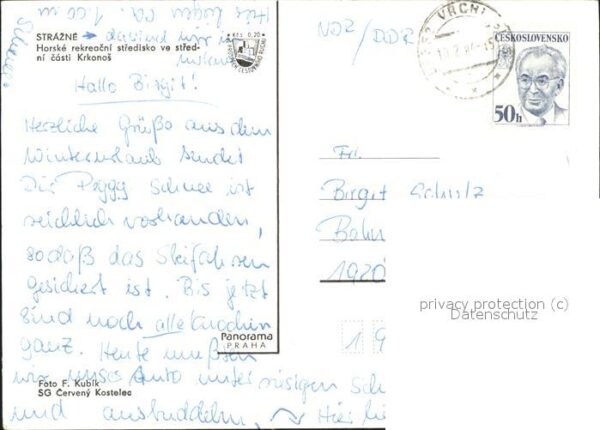 Hier liegen ca. 1.00 m
Schnee.
STRÁŽNÉ → davind wir in
Horské rekreační středisko ve střed-
ní části Krkonoš
Kčs 0,20
NDR/DDR
VRCHL
ČESKOSLOVENSKO
50h
Hallo Birgit!
Herzliche Grüße aus dem
Winterurlaub sendet
Dir Peggy Schnee ist
reichlich vorhanden,
sodaß das Skifahren
gesichert ist. Bis jetzt
sind noch alle Knochen
ganz. Heute mußten
wir unser Auto unter riesigen Sch
und ausbuddeln, → Hier
Fr.
Birgit Schulz
Bahn
1920
privacy protection (c)
Datenschutz
Panorama
PRAHA
1 9
Foto F. Kubík
SG Červený Kostelec